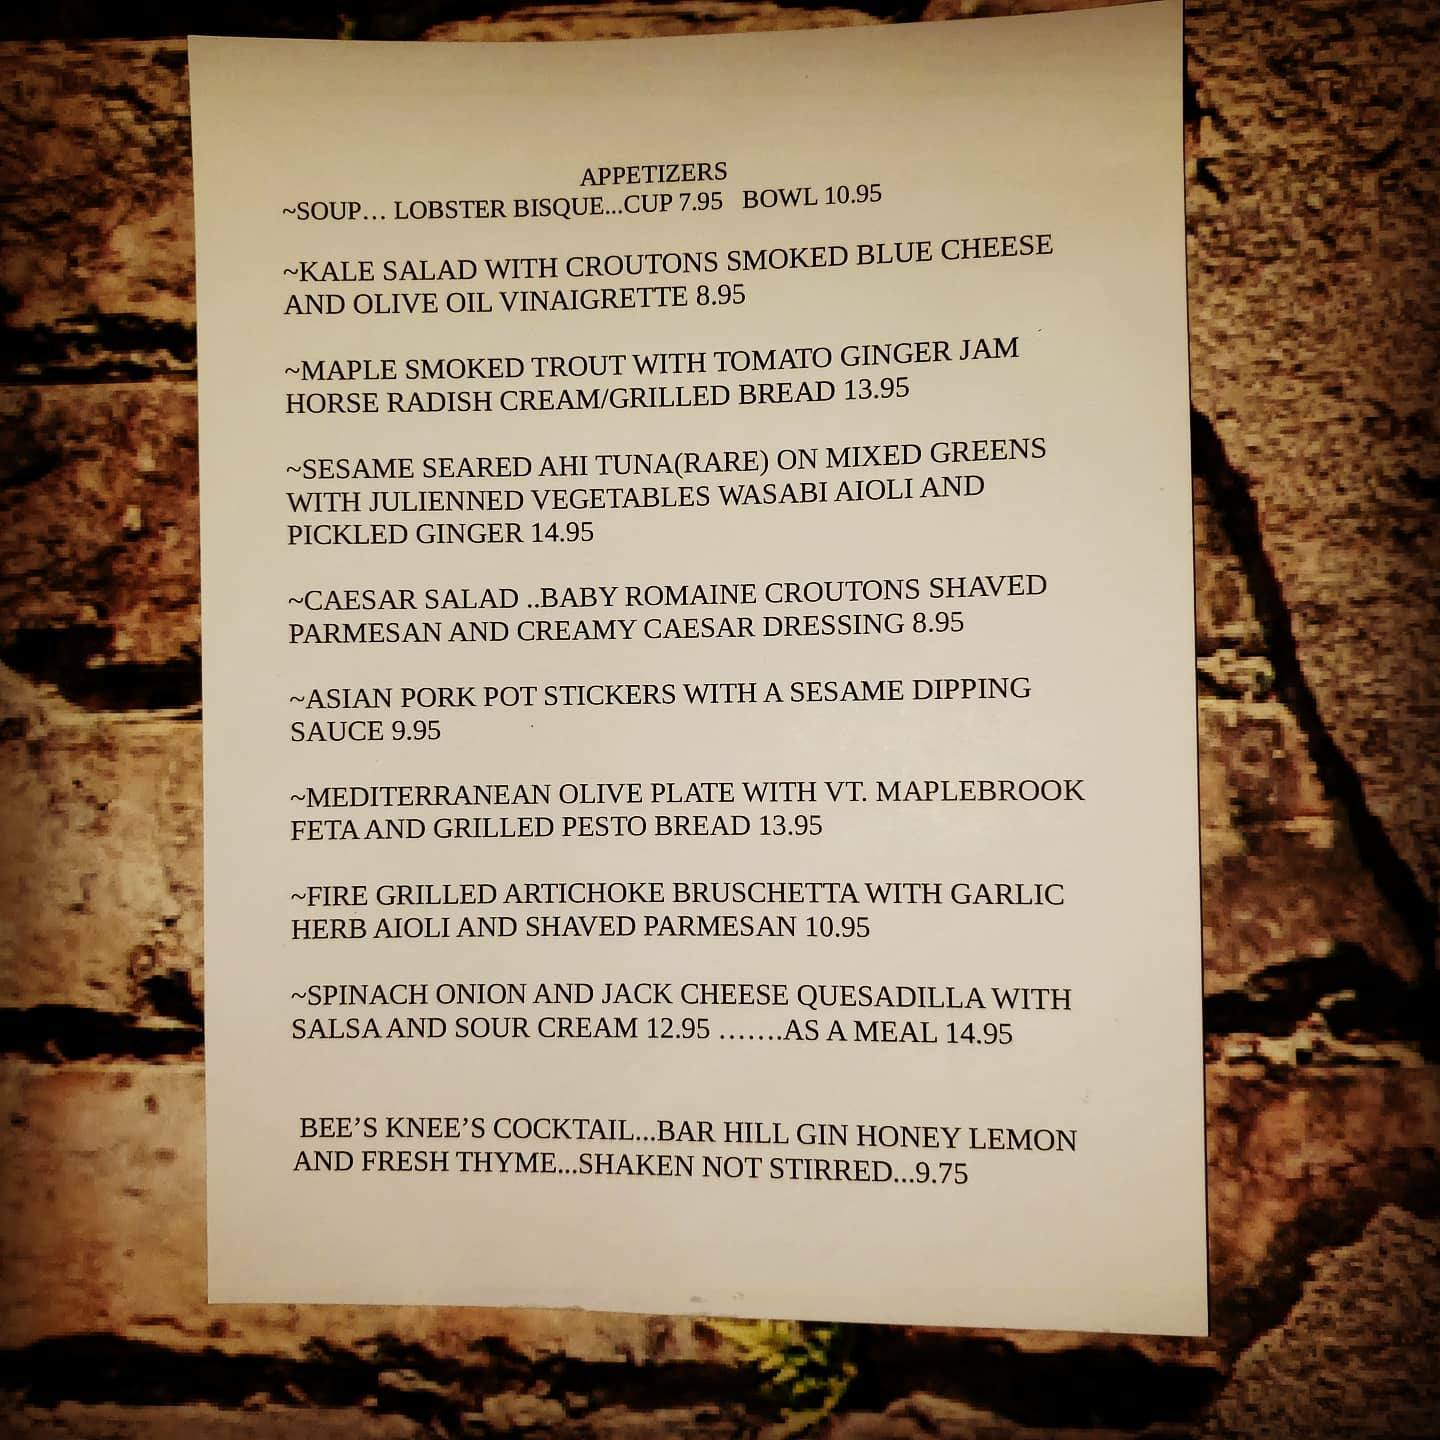 APPETIZERS
~SOUP... LOBSTER BISQUE...CUP 7.95 BOWL 10.95
~KALE SALAD WITH CROUTONS SMOKED BLUE CHEESE
AND OLIVE OIL VINAIGRETTE 8.95
~MAPLE SMOKED TROUT WITH TOMATO GINGER JAM
HORSE RADISH CREAM/GRILLED BREAD 13.95
~SESAME SEARED AHI TUNA(RARE) ON MIXED GREENS
WITH JULIENNED VEGETABLES WASABI AIOLI AND
PICKLED GINGER 14.95
~CAESAR SALAD ..BABY ROMAINE CROUTONS SHAVED
PARMESAN AND CREAMY CAESAR DRESSING 8.95
~ASIAN PORK POT STICKERS WITH A SESAME DIPPING
SAUCE 9.95
~MEDITERRANEAN OLIVE PLATE WITH VT. MAPLEBROOK
FETA AND GRILLED PESTO BREAD 13.95
~FIRE GRILLED ARTICHOKE BRUSCHETTA WITH GARLIC
HERB AIOLI AND SHAVED PARMESAN 10.95
~SPINACH ONION AND JACK CHEESE QUESADILLA WITH
SALSA AND SOUR CREAM 12.95 .......AS A MEAL 14.95
BEE’S KNEE’S COCKTAIL...BAR HILL GIN HONEY LEMON
AND FRESH THYME...SHAKEN NOT STIRRED...9.75